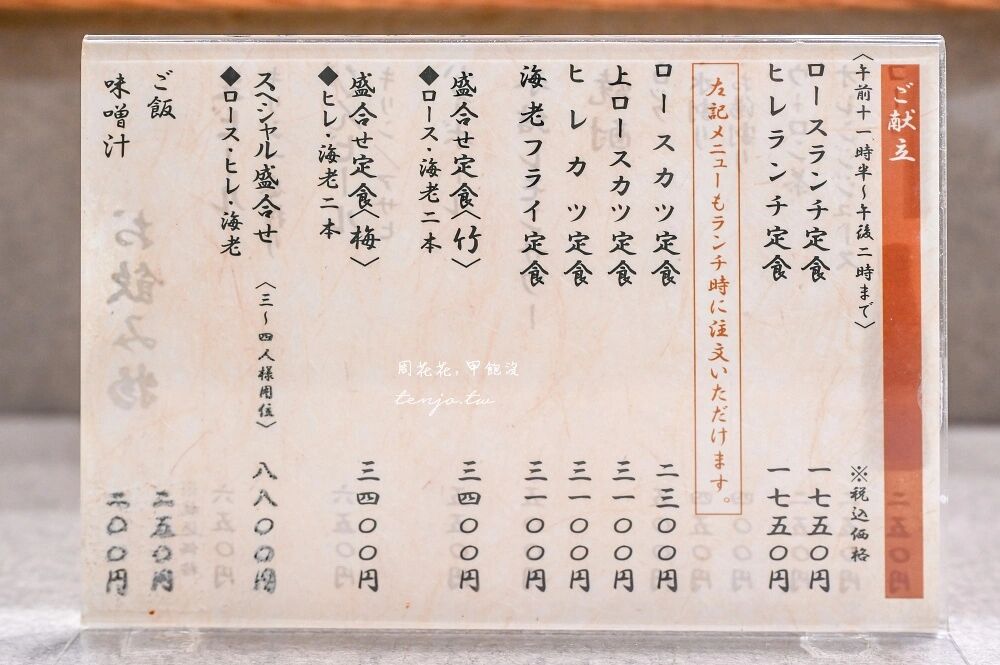 ご献立
〈午前十一時半～午後二時まで〉
※税込価格
ロースランチ定食 一七五〇円
ヒレランチ定食 一七五〇円
左記メニューもランチ時に注文いただけます。
ロースカツ定食 二三〇〇円
上ロースカツ定食 三一〇〇円
ヒレカツ定食 三一〇〇円
海老フライ定食 三一〇〇円
盛合せ定食〈竹〉 三四〇〇円
◆ロース・海老二本
盛合せ定食〈梅〉 三四〇〇円
◆ヒレ・海老二本
スペシャル盛合せ 〈三～四人様用位〉 八八〇〇円
◆ロース・ヒレ・海老
ご飯 二五〇円
味噌汁 二〇〇円
周花花，甲飽沒
tenjo.tw